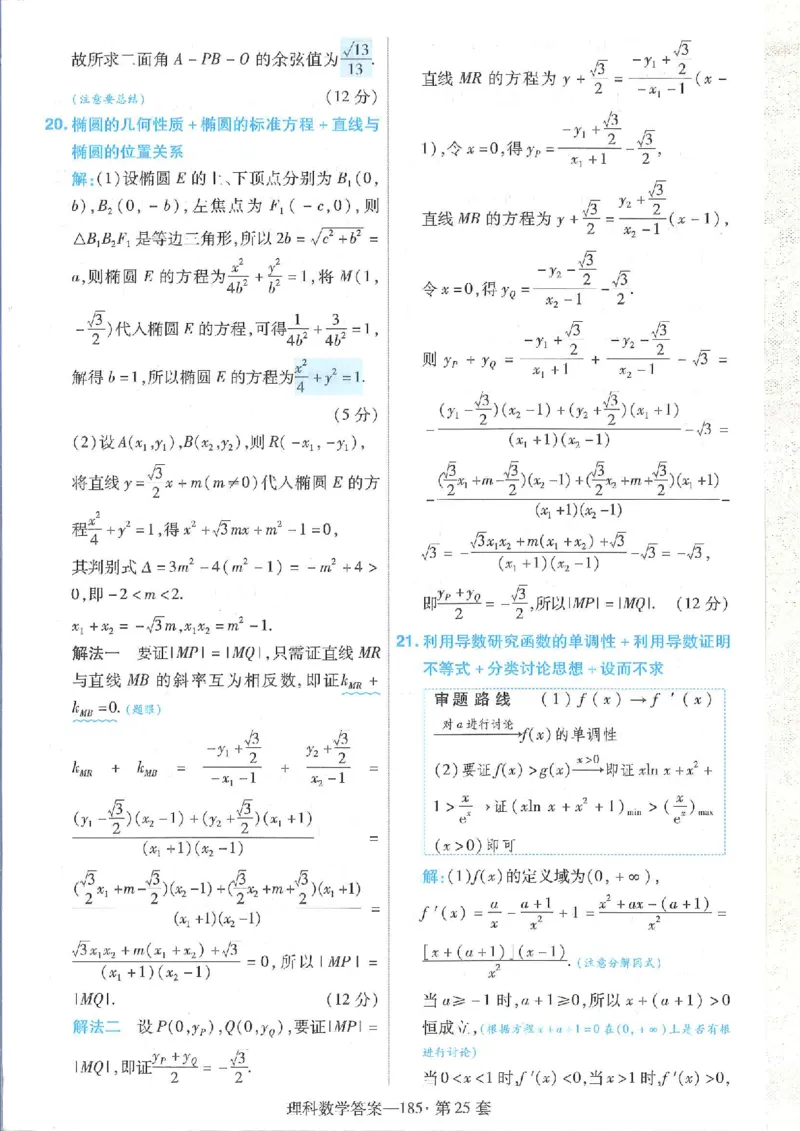 故所求二面角 A-PB-O 的余弦值为 √13/13.
(注意要总结) (12 分)
20. 椭圆的几何性质+椭圆的标准方程+直线与
椭圆的位置关系
解:(1)设椭圆 E 的上、下顶点分别为 B₁(0,
b),B₂(0,-b),左焦点为 F₁(-c,0),则
△B₁B₂F₁ 是等边三角形,所以 2b=√(c²+b²)=
a,则椭圆 E 的方程为 x²/4b²+y²/b²=1,将 M(1,
-√3/2)代入椭圆 E 的方程,可得 1/4b²+3/4b²=1,
解得 b=1,所以椭圆 E 的方程为 x²/4+y²=1.
(5 分)
(2)设 A(x₁,y₁),B(x₂,y₂),则 R(-x₁,-y₁),
将直线 y=√3/2 x+m(m≠0)代入椭圆 E 的方
程 x²/4+y²=1,得 x²+√3mx+m²-1=0,
其判别式 Δ=3m²-4(m²-1)=-m²+4>
0,即-2<m<2.
x₁+x₂=-√3m,x₁x₂=m²-1.
解法一 要证|MP|=|MQ|,只需证直线 MR
与直线 MB 的斜率互为相反数,即证 k_MR+
k_MB=0. (题眼)
k_MR + k_MB = (-y₁+√3/2)/(-x₁-1) + (y₂+√3/2)/(x₂-1) =
[(y₁-√3/2)(x₂-1)+(y₂+√3/2)(x₁+1)]/[(x₁+1)(x₂-1)] =
[(√3/2 x₁+m-√3/2)(x₂-1)+(√3/2 x₂+m+√3/2)(x₁+1)]/[(x₁+1)(x₂-1)] =
[√3x₁x₂+m(x₁+x₂)+√3]/[(x₁+1)(x₂-1)]=0,所以|MP|=
|MQ|. (12 分)
解法二 设 P(0,y_P),Q(0,y_Q),要证|MP|=
|MQ|,即证 (y_P+y_Q)/2=-√3/2.
直线 MR 的方程为 y+√3/2=(-y₁+√3/2)/(-x₁-1)(x-
1),令 x=0,得 y_P=(-y₁+√3/2)/(x₁+1)-√3/2,
直线 MB 的方程为 y+√3/2=(y₂+√3/2)/(x₂-1)(x-1),
令 x=0,得 y_Q=(-y₂-√3/2)/(x₂-1)-√3/2.
则 y_P+y_Q=(-y₁+√3/2)/(x₁+1)+(-y₂-√3/2)/(x₂-1)-√3=
-[(y₁-√3/2)(x₂-1)+(y₂+√3/2)(x₁+1)]/[(x₁+1)(x₂-1)]-√3=
-[(√3/2 x₁+m-√3/2)(x₂-1)+(√3/2 x₂+m+√3/2)(x₁+1)]/[(x₁+1)(x₂-1)]-
√3=-[√3x₁x₂+m(x₁+x₂)+√3]/[(x₁+1)(x₂-1)]-√3=-√3,
即 (y_P+y_Q)/2=-√3/2,所以|MP|=|MQ|. (12 分)
21. 利用导数研究函数的单调性+利用导数证明
不等式+分类讨论思想+设而不求
审题路线 (1)f(x)→f′(x)
对 a 进行讨论→f(x)的单调性
(2)要证 f(x)>g(x) x>0→即证 xln x+x²+
1>x/eˣ→证(xln x+x²+1)min>(x/eˣ)max
(x>0)即可
解:(1)f(x)的定义域为(0,+∞),
f′(x)=a/x-(a+1)/x²+1=[x²+ax-(a+1)]/x²=
[x+(a+1)](x-1)/x². (注意分解因式)
当 a≥-1 时,a+1≥0,所以 x+(a+1)>0
恒成立,(根据方程 x+a+1=0 在(0,+∞)上是否有根
进行讨论)
当 0<x<1 时,f′(x)<0,当 x>1 时,f′(x)>0,
理科数学答案—185·第 25 套